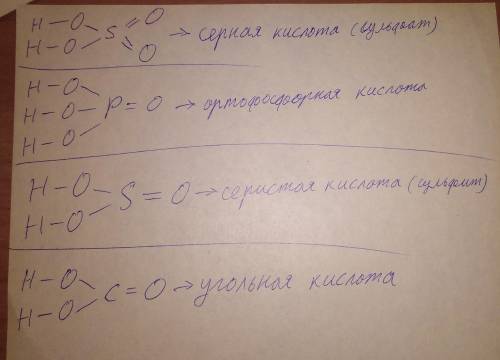 H-O
H-O S =O =O → серная кислота (сульфат)
H-O
H-O- P=O → ортофосфорная кислота
H-O
H-O
H-O S=O → сернистая кислота (сульфит)
H-O
H-O C=O → угольная кислота